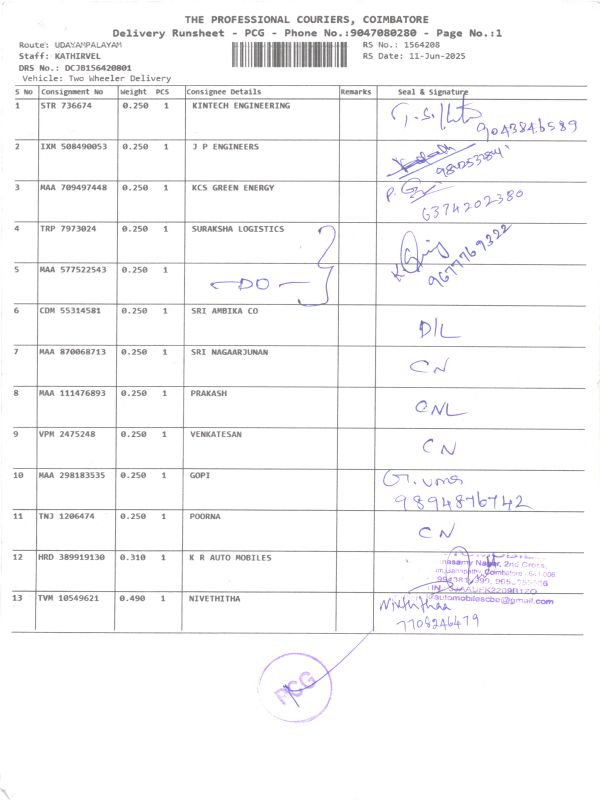 THE PROFESSIONAL COURIERS, COIMBATORE
Delivery Runsheet - PCG - Phone No.:9047080280 - Page No.:1
Route: UDAYAMPALAYAM RS No.: 1564208
Staff: KATHIRVEL RS Date: 11-Jun-2025
DRS No.: DCJB156420801
Vehicle: Two Wheeler Delivery
S No Consignment No Weight PCS Consignee Details Remarks Seal & Signature
1 STR 736674 0.250 1 KINTECH ENGINEERING
9043846589
2 IXM 508490053 0.250 1 J P ENGINEERS
3 MAA 709497448 0.250 1 KCS GREEN ENERGY
6374202380
4 TRP 7973024 0.250 1 SURAKSHA LOGISTICS
9677769322
5 MAA 577522543 0.250 1 -DO-
6 CDM 55314581 0.250 1 SRI AMBIKA CO D/L
7 MAA 870068713 0.250 1 SRI NAGAARJUNAN CN
8 MAA 111476893 0.250 1 PRAKASH CNL
9 VPM 2475248 0.250 1 VENKATESAN CN
10 MAA 298183535 0.250 1 GOPI G. uma
9894876742
11 TNJ 1206474 0.250 1 POORNA CN
12 HRD 389919130 0.310 1 K R AUTO MOBILES
Nagar, 2nd Cross,
Coimbatore - 641 006
automobilescbe@gmail.com
13 TVM 10549621 0.490 1 NIVETHITHA Nivethithaa
7708246479
PCG